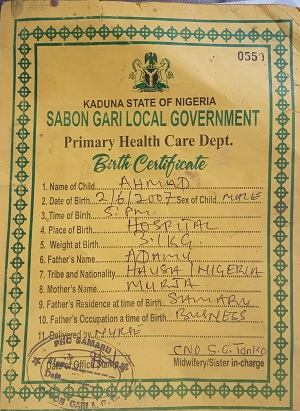 0559
KADUNA STATE OF NIGERIA
SABON GARI LOCAL GOVERNMENT
Primary Health Care Dept.
Birth Certificate
1. Name of Child AHMAD
2. Date of Birth 2/6/2007 Sex of Child MALE
3. Time of Birth 5: PM.
4. Place of Birth HOSPITAL
5. Weight at Birth 3.1KG.
6. Father's Name ADAMU
7. Tribe and Nationality HAUSA/NIGERIA
8. Mother's Name MURJA
9. Father's Residence at time of Birth SAMARU
10. Father's Occupation a time of Birth BUSNESS
11. Delivered by NURSE
PHC SAMARU
CNO S.G. Tanko
Date of Office Stamp
Midwifery/Sister in-charge
Date